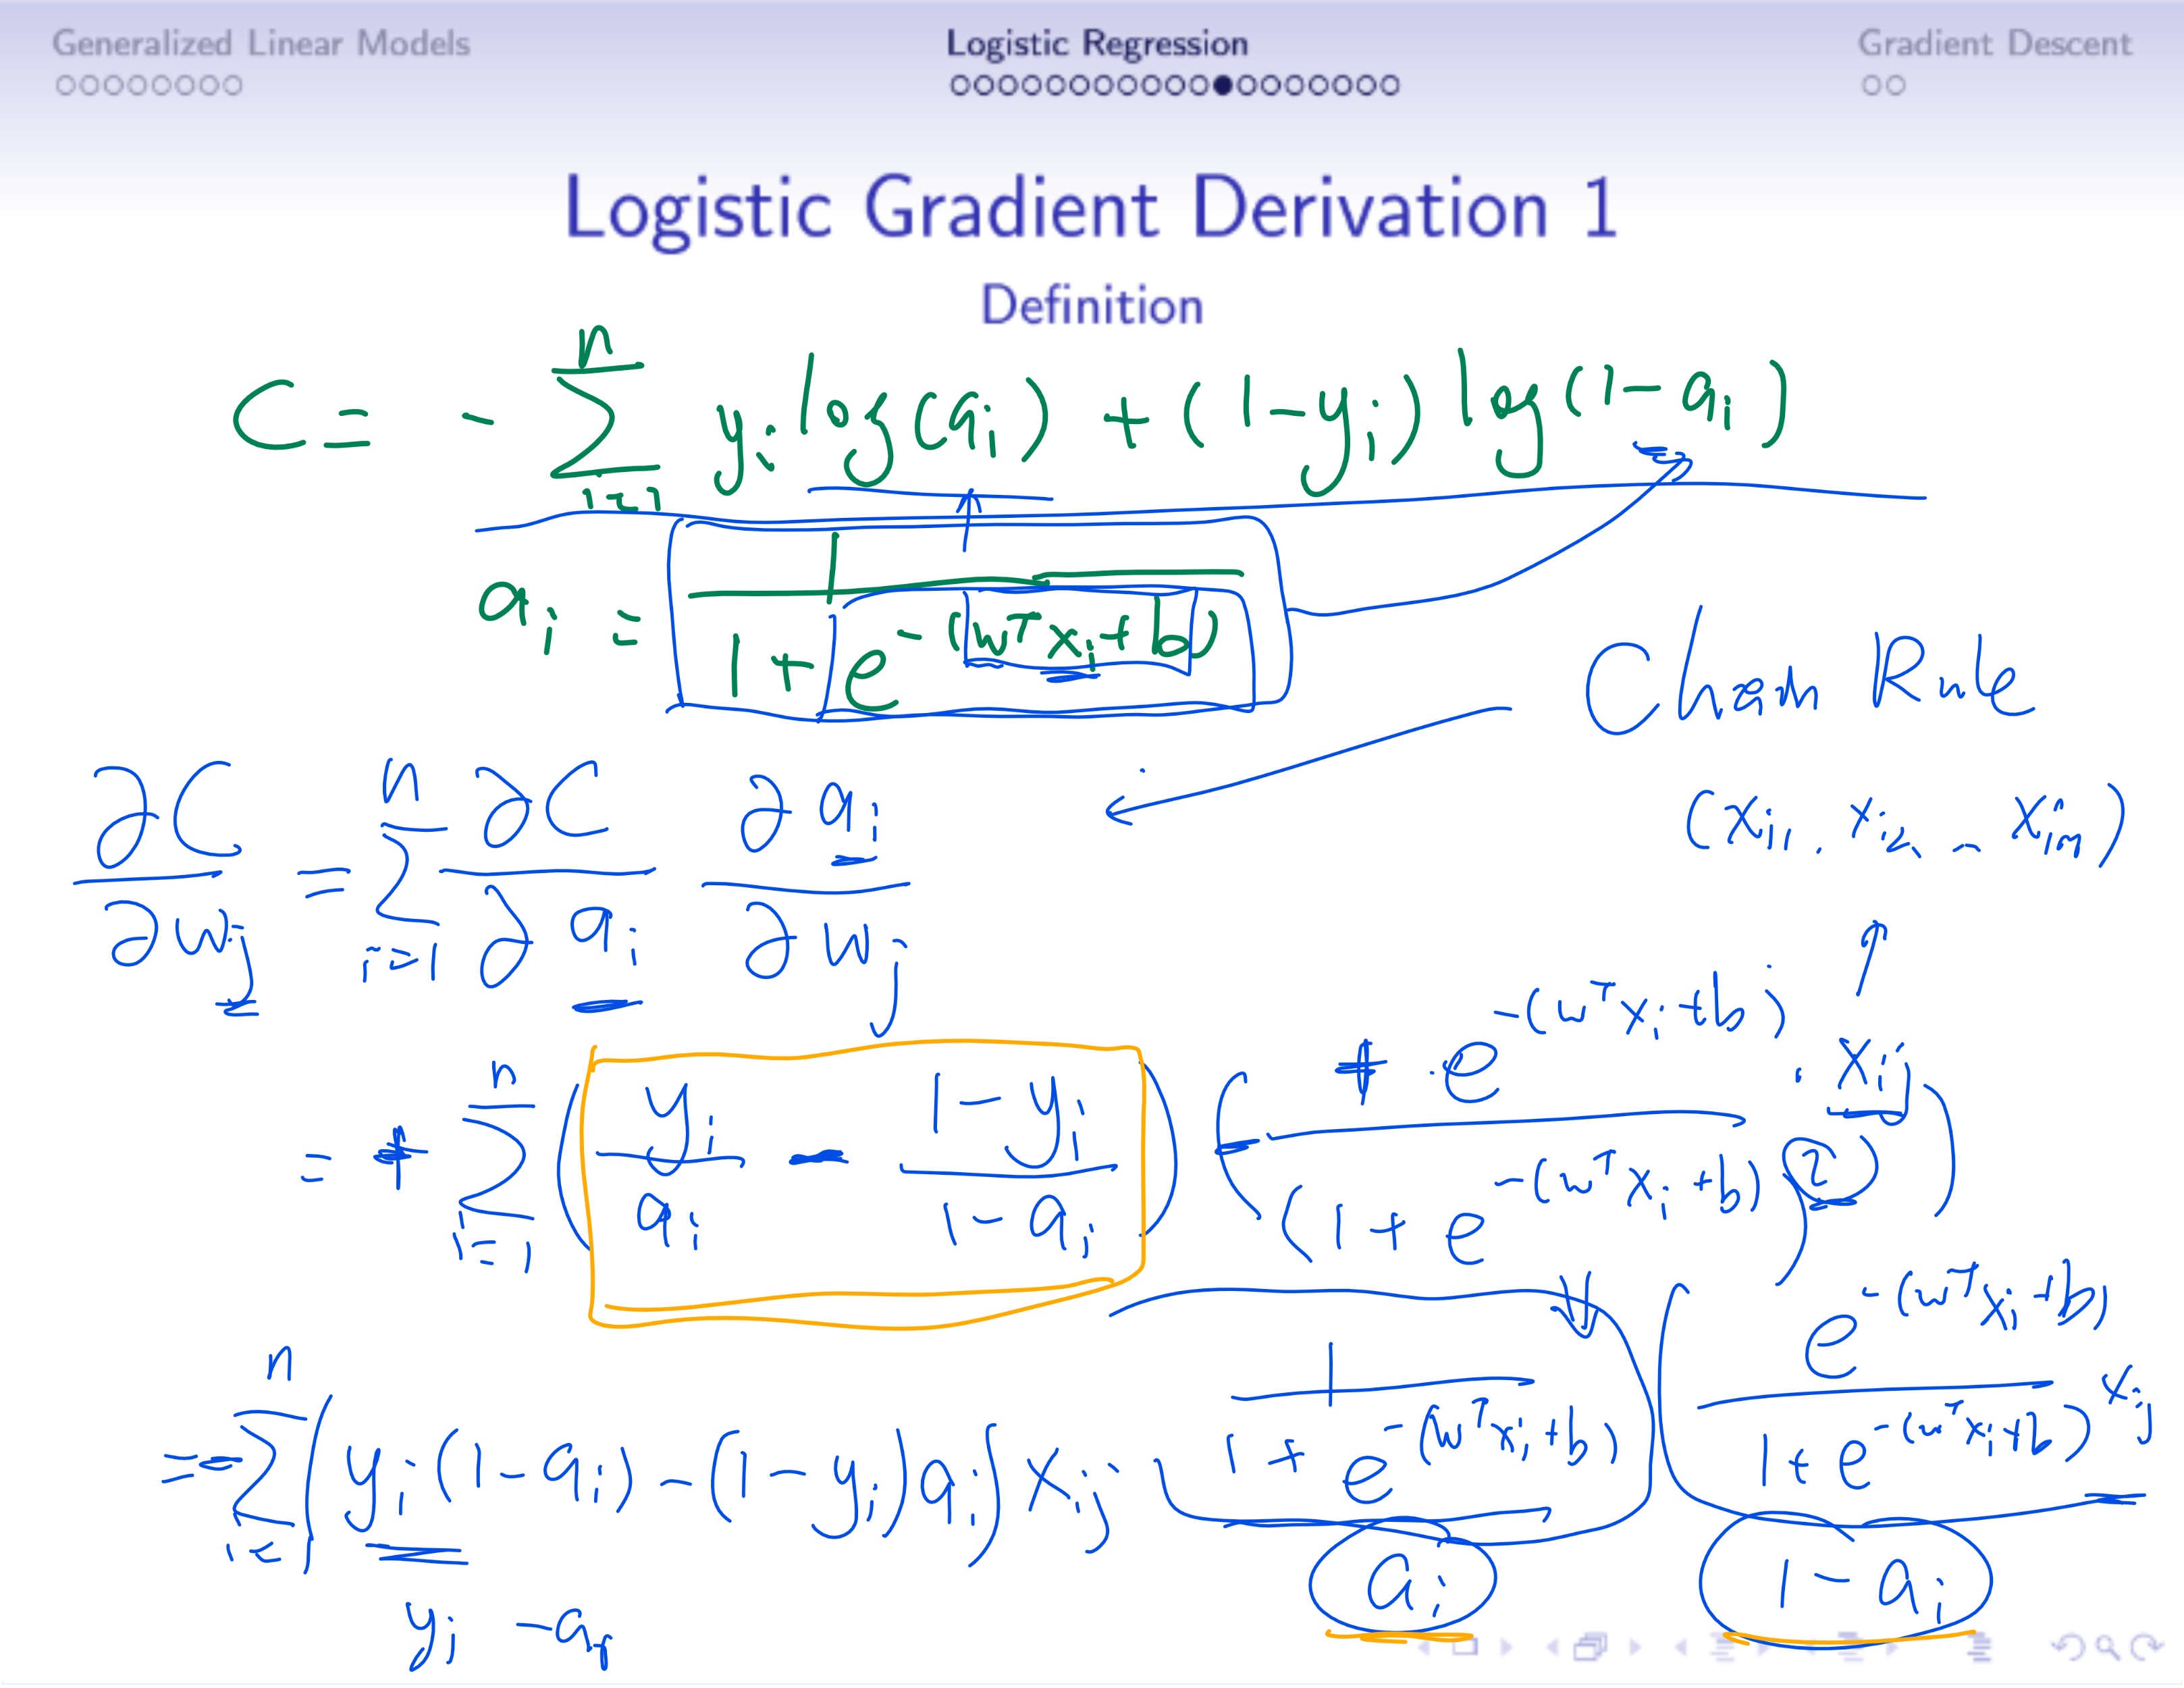 Generalized Linear Models Logistic Regression Gradient Descent
Logistic Gradient Derivation 1
Definition
C = - \sum_{i=1}^{n} y_i log(a_i) + (1-y_i) log(1-a_i)
a_i = \frac{1}{1+e^{-(w^T x_i+b)}}
Chain Rule
(x_{i1}, x_{i2}, ... x_{im})
\frac{∂C}{∂w_j} = \sum_{i=1}^{n} \frac{∂C}{∂a_i} \frac{∂a_i}{∂w_j}
= \sum_{i=1}^{n} ( \frac{y_i}{a_i} - \frac{1-y_i}{1-a_i} ) ( - \frac{e^{-(w^T x_i+b)} · x_{ij}}{(1+e^{-(w^T x_i+b)})^2} )
= - \sum_{i=1}^{n} ( y_i(1-a_i) - (1-y_i) a_i ) x_{ij} \frac{1}{1+e^{-(w^T x_i+b)}} ( \frac{e^{-(w^T x_i+b)}}{1+e^{-(w^T x_i+b)}} ) x_{ij}
y_i - a_i a_i 1-a_i